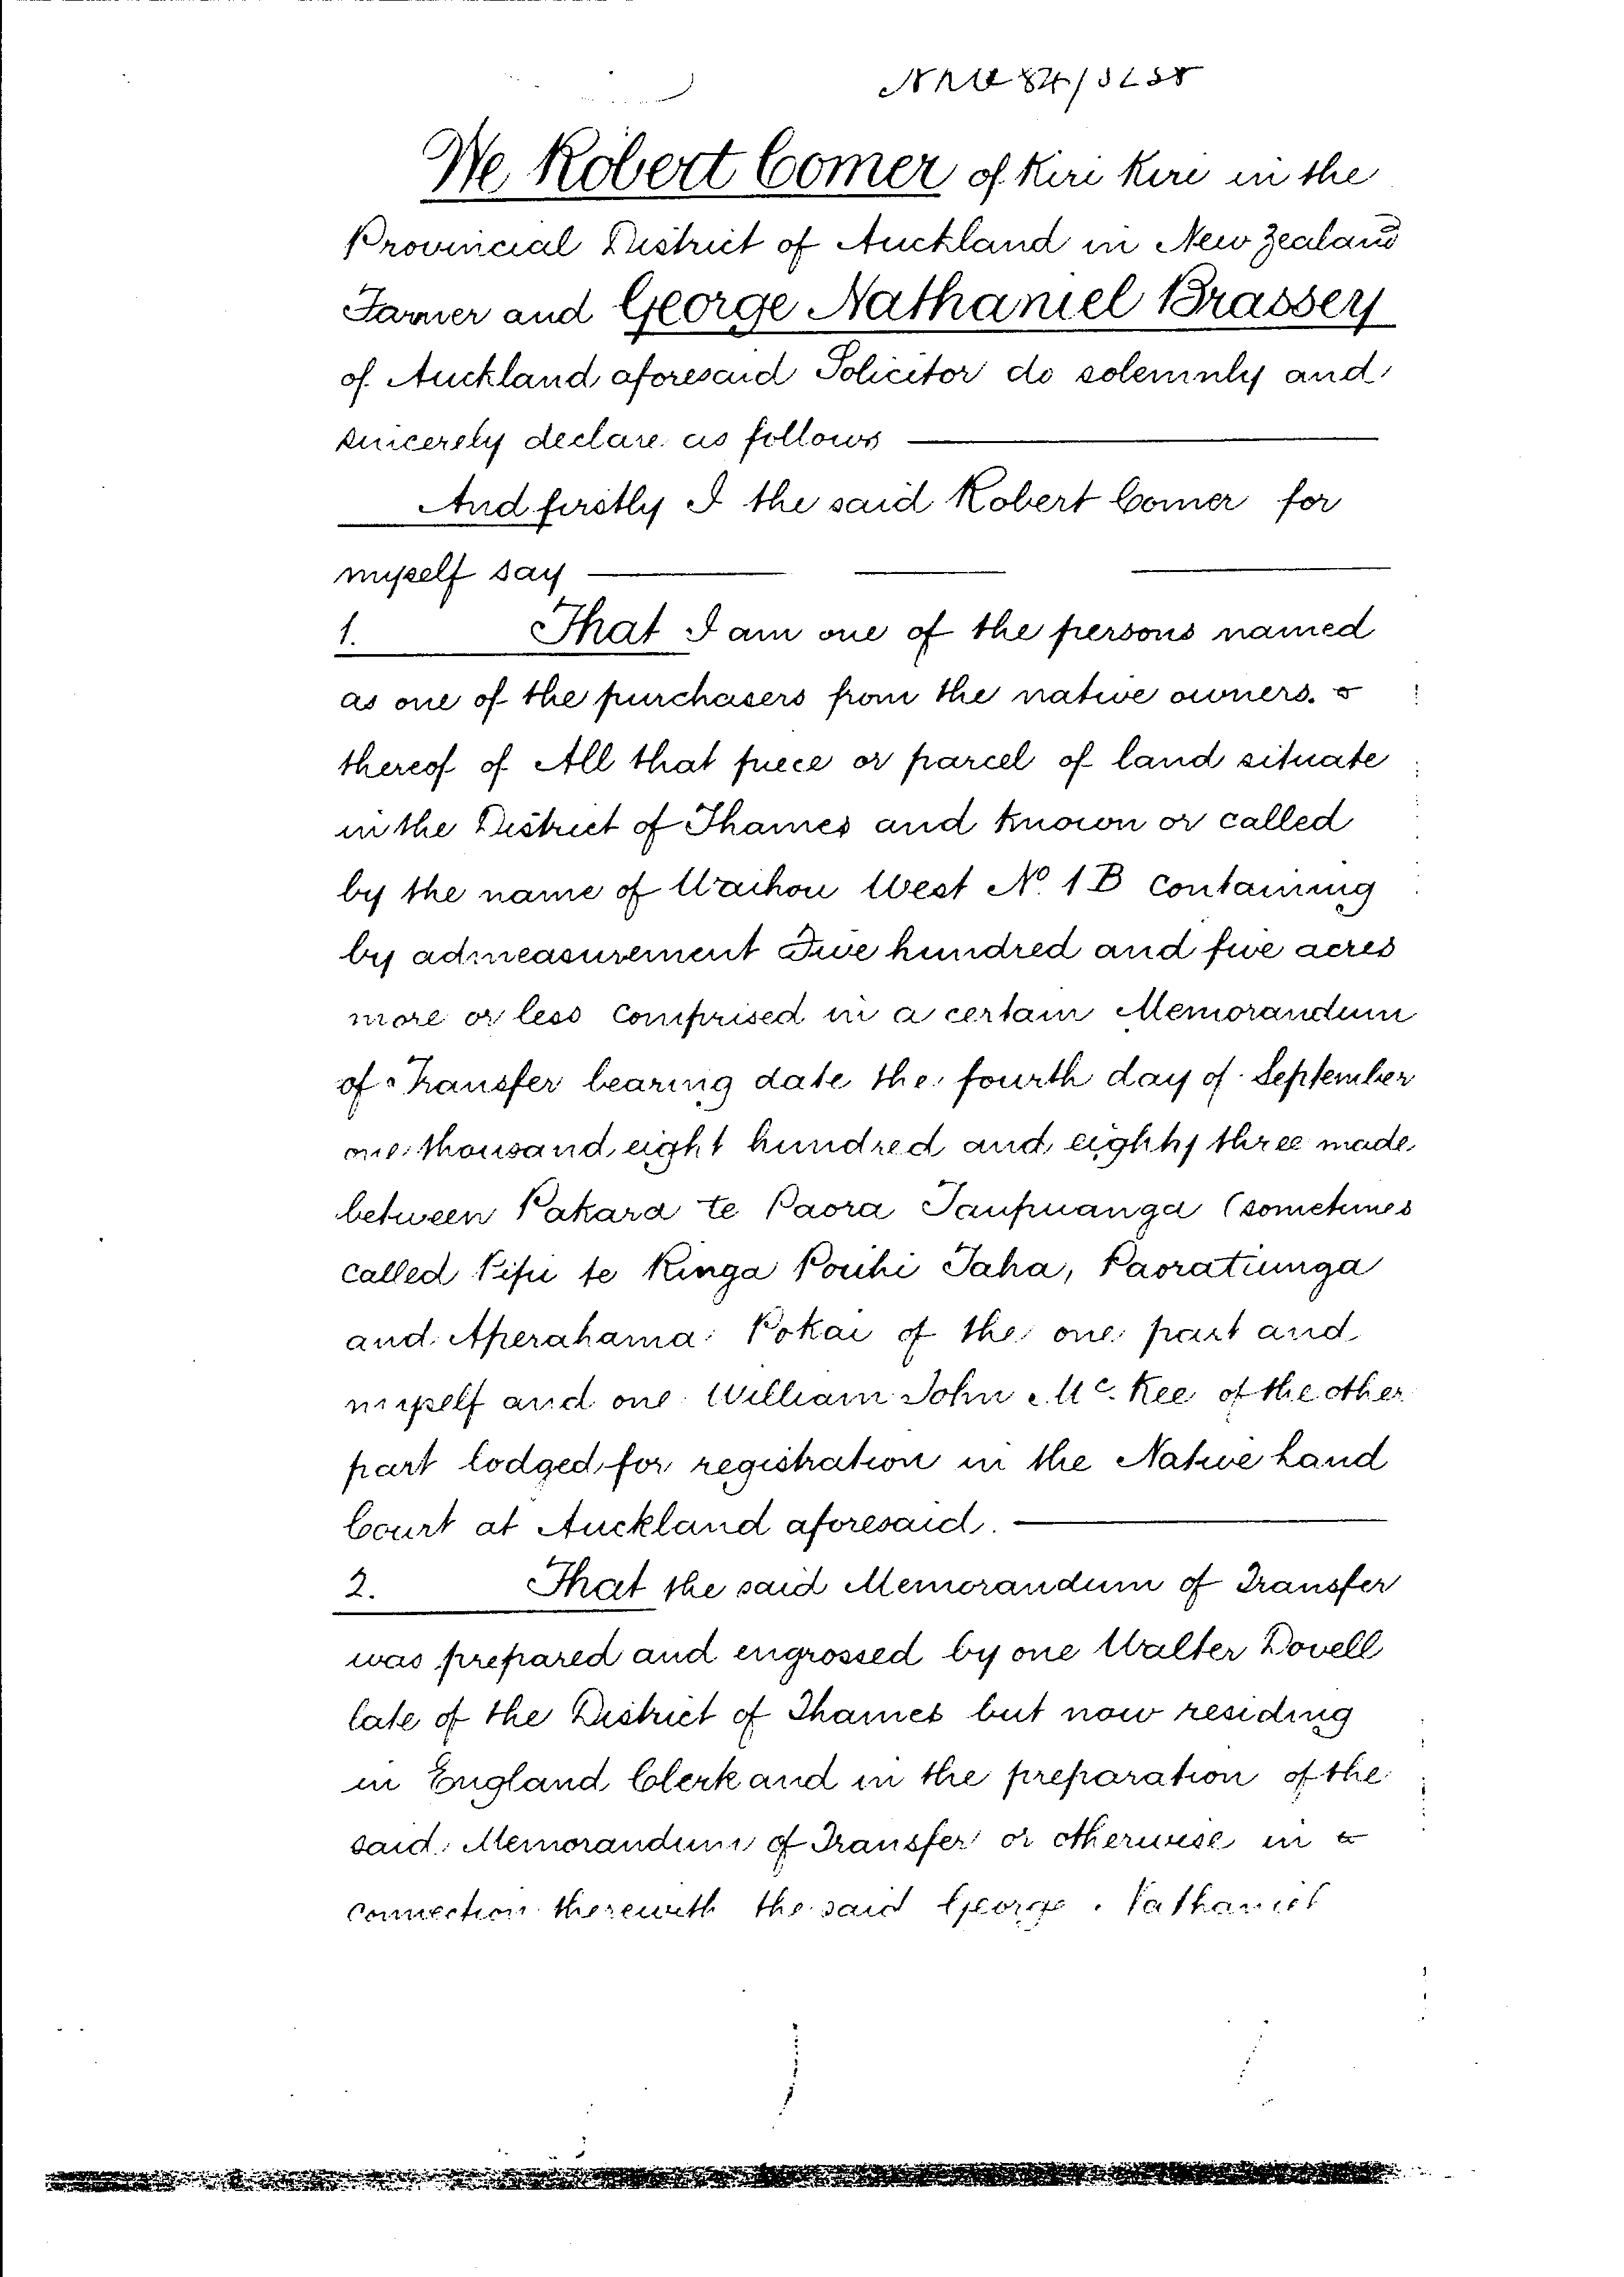 We Robert Comer of Kiri Kiri in the
Provincial District of Auckland in New Zealand
Farmer and George Nathaniel Brassey
of Auckland aforesaid Solicitor do solemnly and
sincerely declare as follows
And firstly I the said Robert Comer for
myself say
1. That I am one of the persons named
as one of the purchasers from the native owners
thereof of All that piece or parcel of land situate
in the District of Thames and known or called
by the name of Waihou West No. 1 B containing
by admeasurement Five hundred and five acres
more or less comprised in a certain Memorandum
of Transfer bearing date the fourth day of September
one thousand eight hundred and eighty three made
between Pakara te Paora Taupuanga (sometimes
called Pipi te Kinga Pouhi Taha, Paoratiunga
and Aperahama Pokai of the one part and
myself and one William John Mc. Kee of the other
part lodged for registration in the Native Land
Court at Auckland aforesaid.
2. That the said Memorandum of Transfer
was prepared and engrossed by one Walter Dovell
late of the District of Thames but now residing
in England Clerk and in the preparation of the
said Memorandum of Transfer or otherwise in
connection therewith the said George Nathaniel